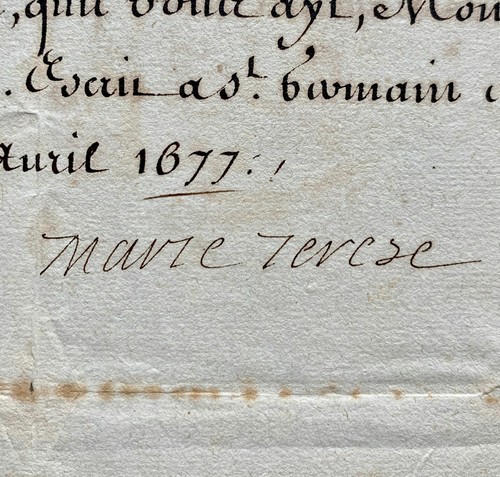 , qu'il vous ayt, Mon
. Escrit a St. Germain
Auril 1677.
Marie Terese